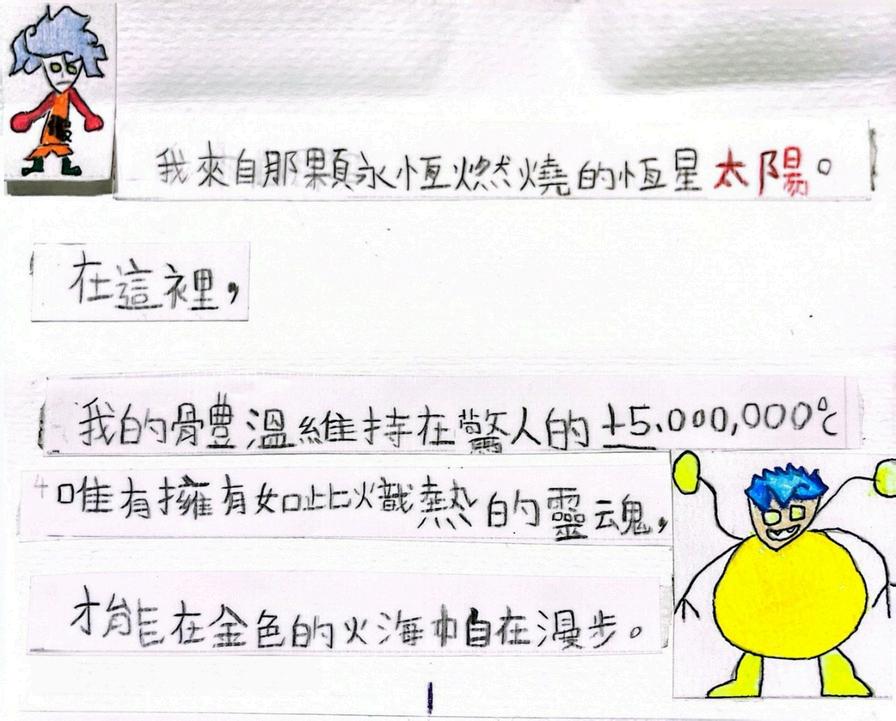 我來自那顆永恆燃燒的恆星太陽。
在這裡，
我的體溫維持在驚人的±5.000,000℃
唯有擁有如此熾熱的靈魂，
才能在金色的火海中自在漫步。